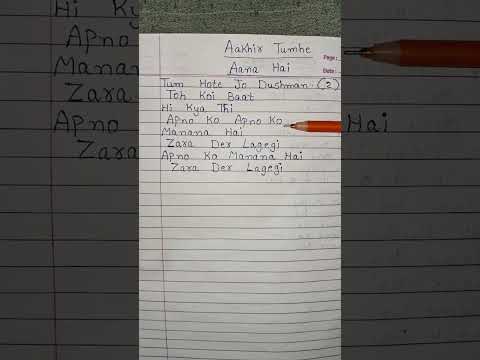 Aakhir Tumhe
Aana Hai
Page:
Date:
Tum Hote Jo Dushman (2)
Toh Koi Baat
Hi Kya Thi
Apno Ko Apno Ko
Manana Hai
Zara Der Lagegi
Apno Ko Manana Hai
Zara Der Lagegi
Hi Ky
Apno
Manana
Zara
Apno
Hai
Zara